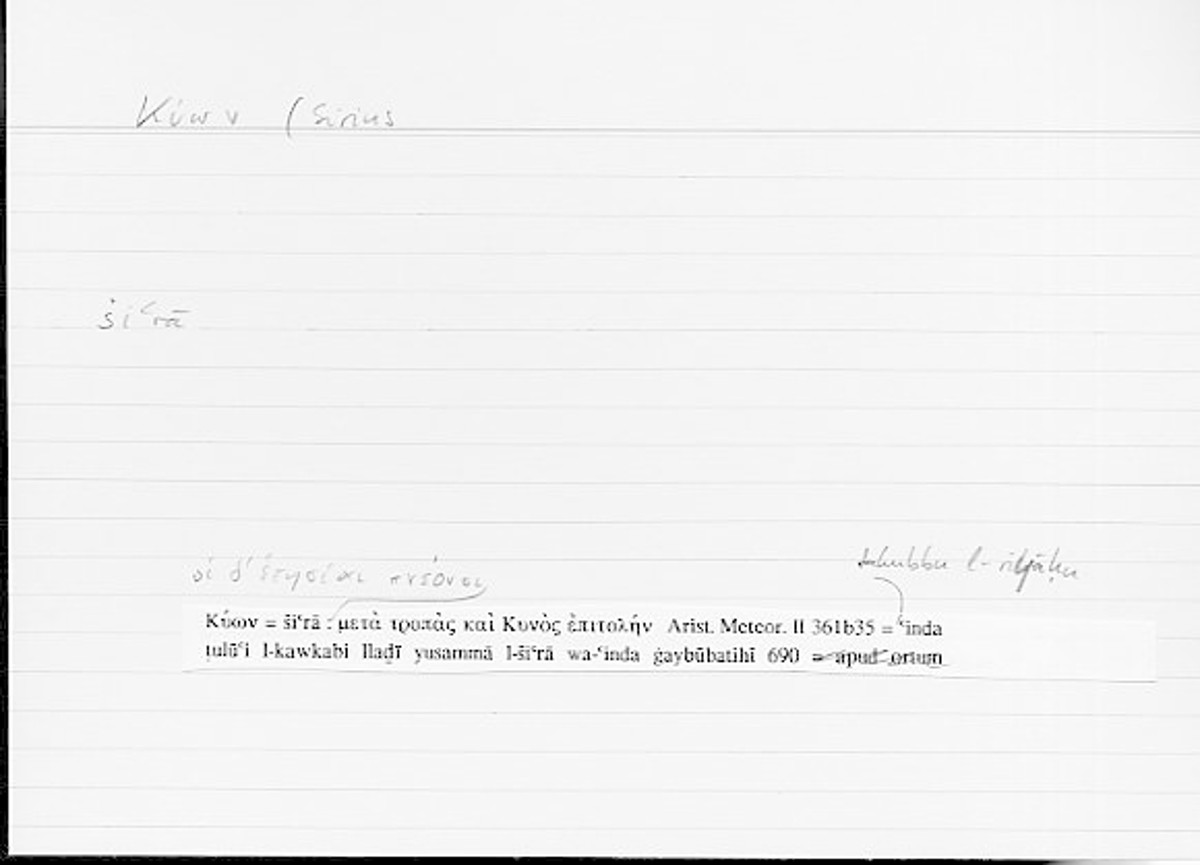 Κύων (Sirius
šiʿrā
οἱ δ' ἐτησίαι πνέουσι
tahubbu l-riyāḥu
Κύων = šiʿrā : μετὰ τροπὰς καὶ Κυνὸς ἐπιτολήν Arist. Meteor. II 361b35 = ʿinda
ṭulūʿi l-kawkabi lladī yusammā l-šiʿrā wa-ʿinda ġaybūbatihī 690 = apud ortum